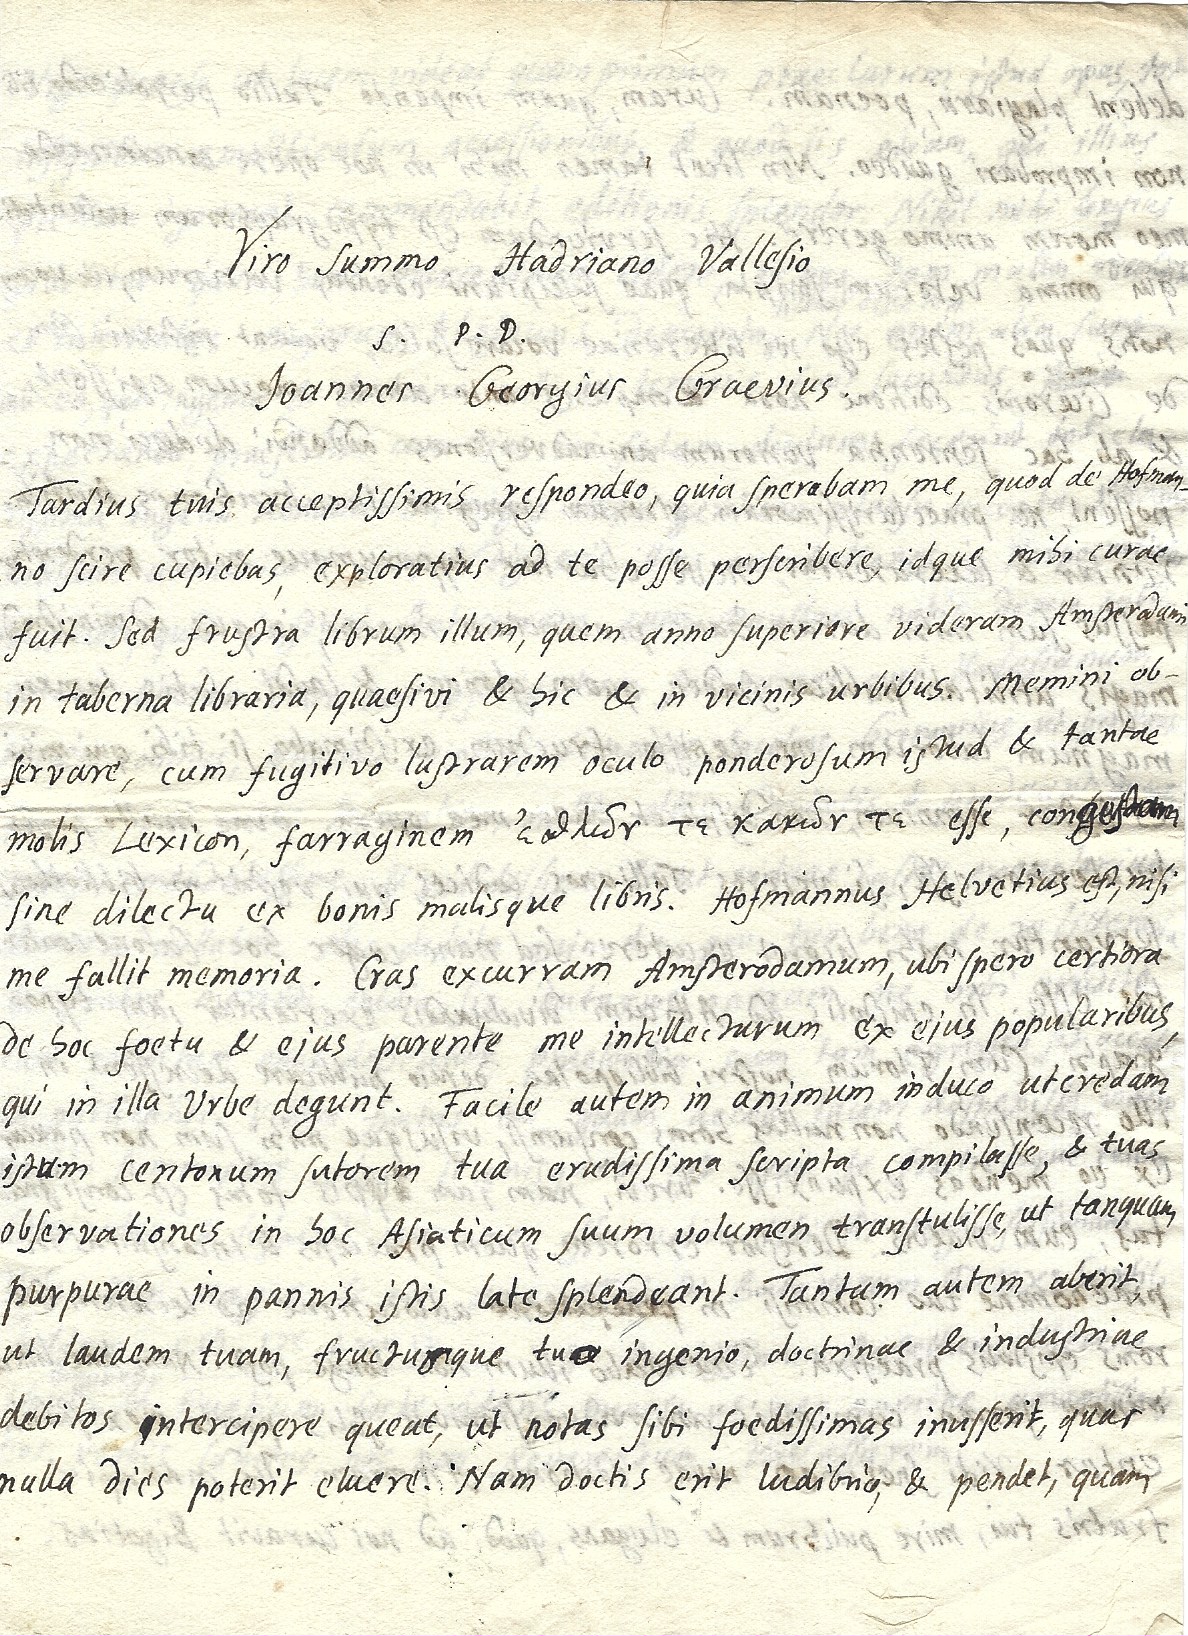 Viro summo Hadriano Vallesio
S. P. D.
Joannes Georgius Graevius.
Tardius tuis acceptissimis respondeo, quia sperabam me, quod de Hofman-
no scire cupiebas, exploratius ad te posse perscribere, idque mihi curae
fuit. Sed frustra librum illum, quem anno superiore videram Amsterodami
in taberna libraria, quaesivi & hic & in vicinis urbibus. Memini ob-
servare, cum fugitivo lustrarem oculo ponderosum istud & tantae
molis Lexicon, farraginem ἐσθλῶν τε κακῶν τε esse, congestam
sine dilectu ex bonis malisque libris. Hofmannus Helvetius est, nisi
me fallit memoria. Cras excurram Amsterodamum, ubi spero certiora
de hoc foetu & ejus parente me intellecturum ex ejus popularibus,
qui in illa Urbe degunt. Facile autem in animum induco ut credam
istum centonum sutorem tua erudissima scripta compilasse, & tuas
observationes in hoc Asiaticum suum volumen transtulisse, ut tanquam
purpurae in pannis istis late splendeant. Tantum autem aberit,
ut laudem tuam, fructumque tuo ingenio, doctrinae & industriae
debitos intercipere queat, ut notas sibi foedissimas inusserit, quas
nulla dies poterit eluere. Nam doctis erit ludibrio, & pendet, quam